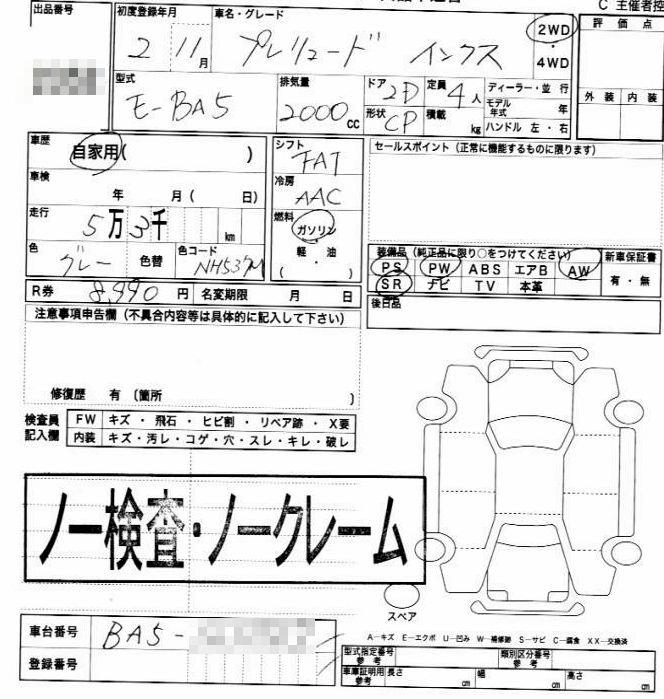 C 主催者控
出品番号
初度登録年月
2 11月
車名・グレード
プレリュード インクス
2WD
・
4WD
評価点
外装 内装
型式
E-BA5
排気量
2000cc
ドア 2D
形状 CP
定員 4人
積載 kg
ディーラー・並行
モデル年式 年
ハンドル 左・右
車歴
自家用( )
車検
年 月( 日)
走行
5万3千 km
色
グレー
色替
色コード
NH537M
シフト
FAT
冷房
AAC
燃料
ガソリン
軽・油
( )
セールスポイント(正常に機能するものに限ります)
装備品(純正品に限り○をつけてください)
PS PW ABS エアB AW
SR ナビ TV 本革
新車保証書
有・無
後日品
R券 8,990円 名変期限 月 日
注意事項申告欄(不具合内容等は具体的に記入して下さい)
修復歴 有 (箇所 )
検査員
記入欄
FW キズ・飛石・ヒビ割・リペア跡・X要
内装 キズ・汚レ・コゲ・穴・スレ・キレ・破レ
ノー検査・ノークレーム
スペア
A―キズ E―エクボ U―凹み W―補修跡 S―サビ C―腐食 XX―交換済
車台番号 BA5-
登録番号
型式指定番号
参考
類別区分番号
参考
車庫証明用
参考
長さ cm 幅 cm 高さ cm